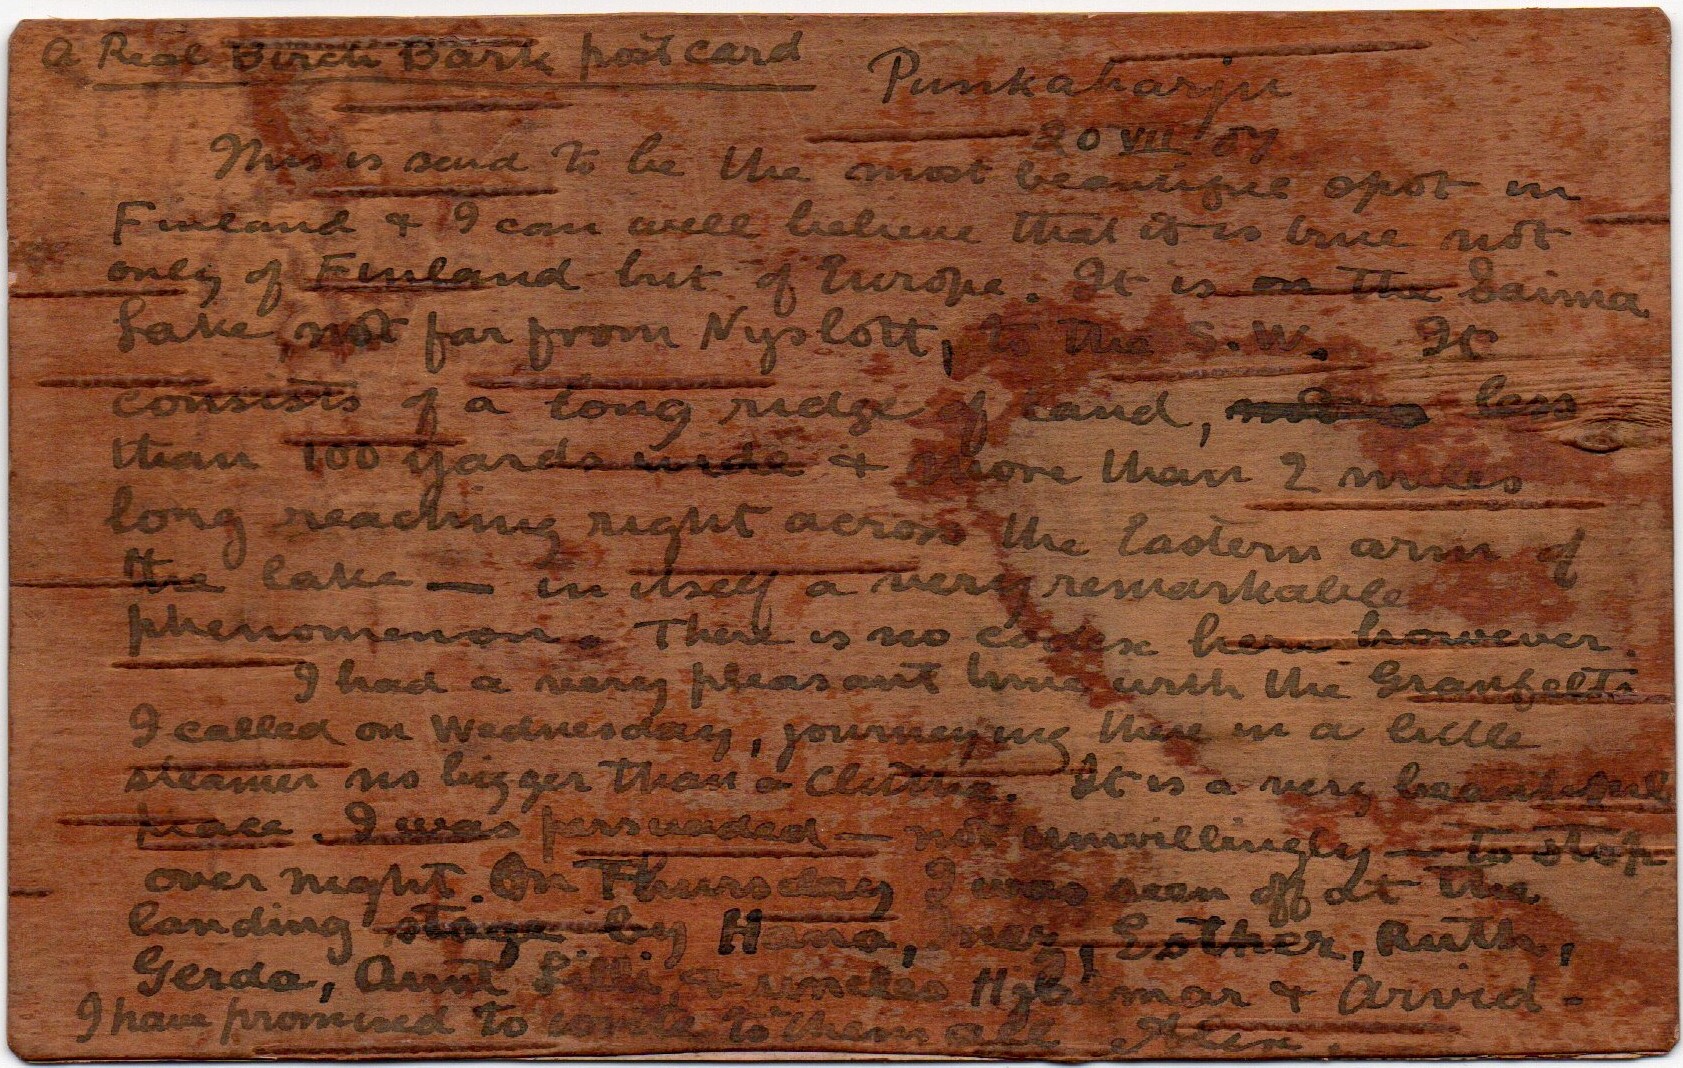 A Real Birch Bark post card
Punkaharju
20 VII 07
This is said to be the most beautiful spot in
Finland & I can well believe that it is true not
only of Finland but of Europe. It is on the Saima
Lake, not far from Nyslott, to the S.W. It
consists of a long ridge of land, less
than 100 yards wide & more than 2 miles
long reaching right across the Eastern arm of
the lake — in itself a very remarkable
phenomenon. There is no codex here however.
I had a very pleasant time with the Granfelts
I called on Wednesday, journeying there in a little
steamer no bigger than a Clutha. It is a very beautiful
place. I was persuaded — not unwillingly — to stop
over night. On Thursday I was seen off at the
landing stage by Hana, Esther, Ruth,
Gerda, Aunt Lilli & uncles Hjalmar & Arvid -
I have promised to write to them all. Alex.